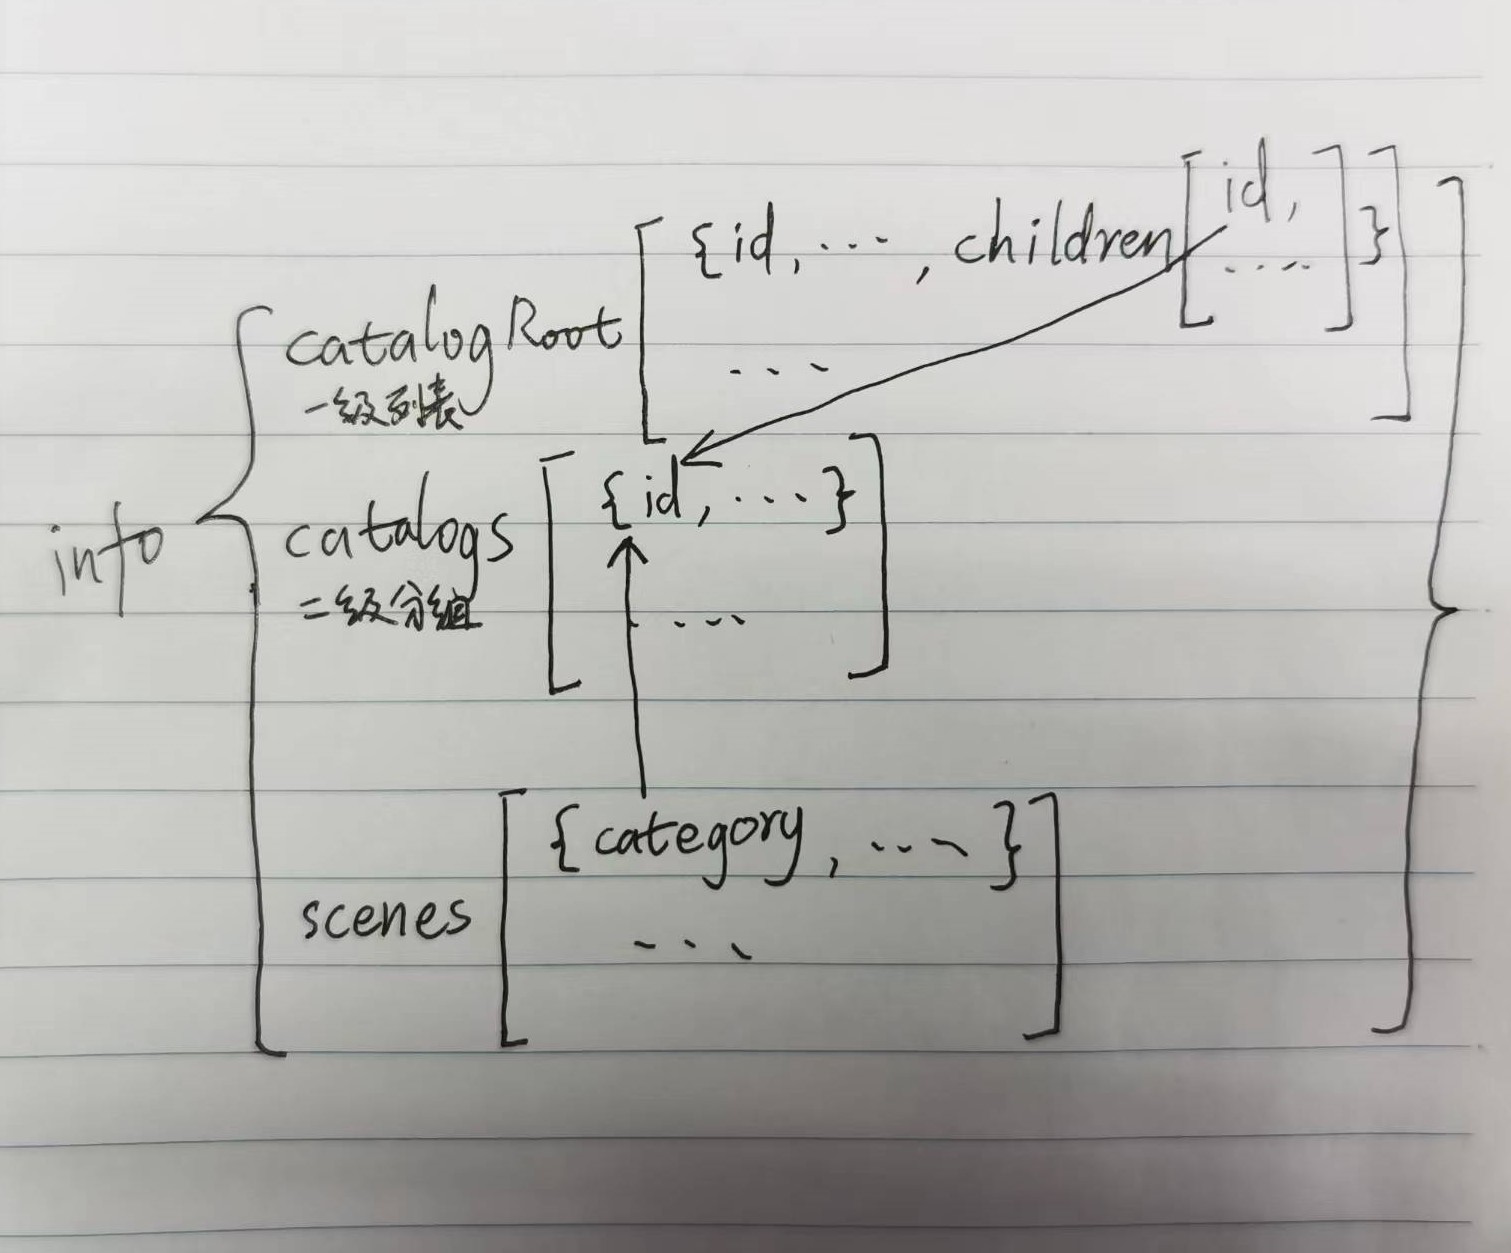 info
catalogRoot [ {id, ..., children [ id, .... ] } ]
一级列表
...
catalogs [ {id, ...} ]
二级分组
...
scenes [ {category, ...} ]
...